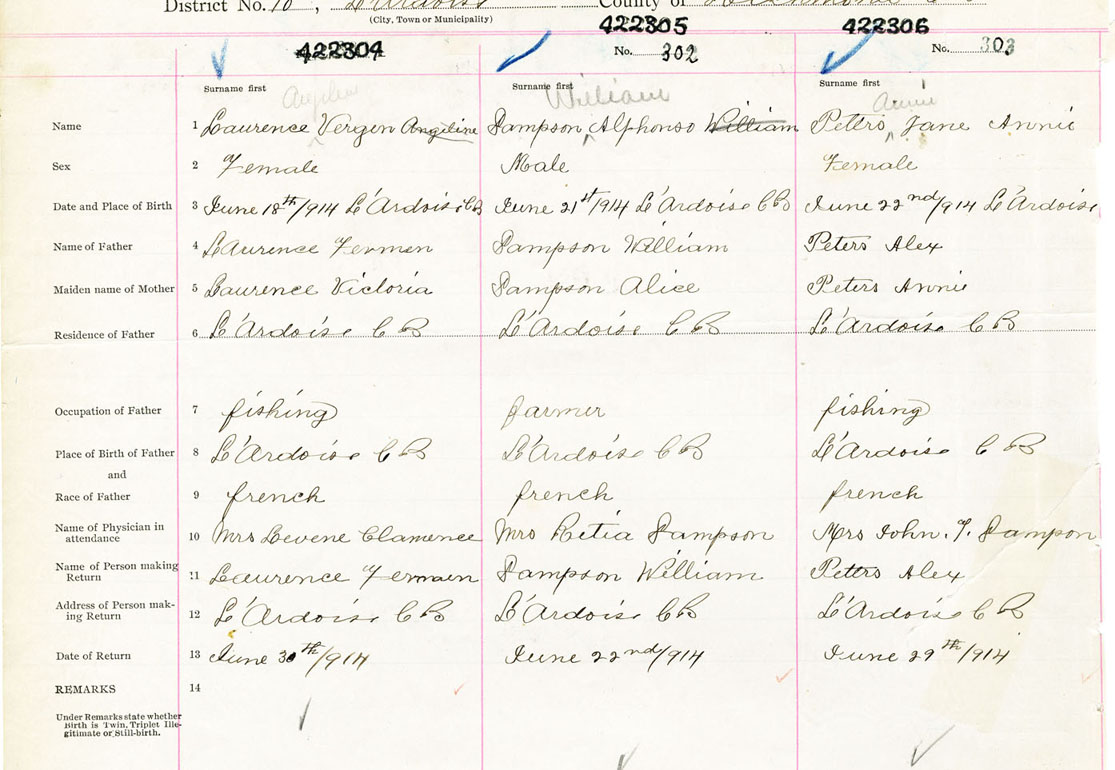 District No. 10, L'Ardoise County of Richmond
(City, Town or Municipality)
422304 422305 422306
No. 302 No. 303
Surname first Surname first Surname first
Angeline William Annie
Name 1 Laurence Vergen Angeline Sampson Alphonso William Peters Jane Annie
Sex 2 Female Male Female
Date and Place of Birth 3 June 18th/914 L'Ardoise CB June 21st/914 L'Ardoise CB June 22nd/914 L'Ardoise
Name of Father 4 Laurence Fermen Sampson William Peters Alex
Maiden name of Mother 5 Laurence Victoria Sampson Alice Peters Annie
Residence of Father 6 L'Ardoise C B L'Ardoise C B L'Ardoise C B
Occupation of Father 7 fishing farmer fishing
Place of Birth of Father 8 L'Ardoise C B L'Ardoise C B L'Ardoise C B
and
Race of Father 9 french french french
Name of Physician in
attendance 10 Mrs Levene Clamence Mrs Retia Sampson Mrs John. T. Sampson
Name of Person making
Return 11 Laurence Fermaen Sampson William Peters Alex
Address of Person mak-
ing Return 12 L'Ardoise C B L'Ardoise C B L'Ardoise C B
Date of Return 13 June 30th/914 June 22nd/914 June 29th/914
REMARKS 14
Under Remarks state whether
Birth is Twin, Triplet Ille-
gitimate or Still-birth.